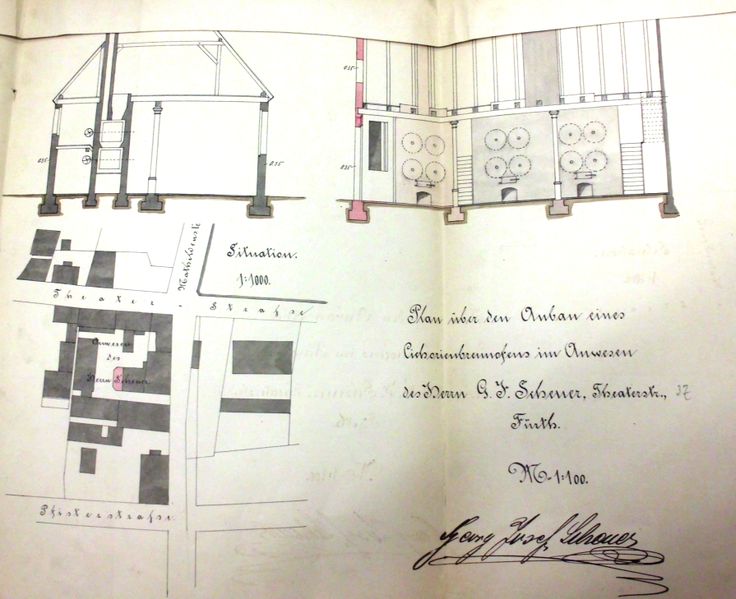 0.35
0.35
0.35
0.35
Situation.
1:1000.
Mathildenstr
Theater - Straße
Anwesen
des
Herrn Scheuer
Pfisterstraße
Plan über den Anbau eines
Cichorienbrennofens im Anwesen
des Herrn G. J. Scheuer, Theaterstr., 37
Fürth.
M-1:100.
Georg Josef Scheuer